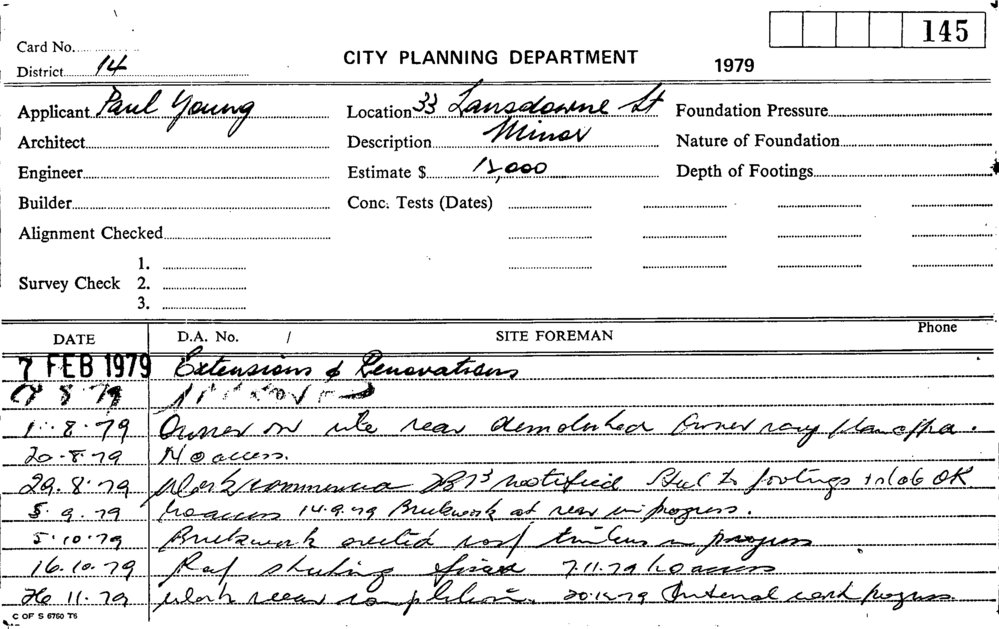 145
Card No.
District 14
CITY PLANNING DEPARTMENT
1979
Applicant Paul Young
Location 33 Lansdowne St
Foundation Pressure
Architect
Description Minor
Nature of Foundation
Engineer
Estimate $ 12,000
Depth of Footings
Builder
Conc. Tests (Dates)
Alignment Checked
Survey Check
1.
2.
3.
DATE
D.A. No. /
SITE FOREMAN
Phone
7 FEB 1979 Extensions & Renovations
8 79
8.79 Owner on site rear demolished Owner
20-8-79 No access.
29.8.79 Work commenced notified Steel to footings & slab OK
5 9.79 No access 14.9.79 Brickwork at rear in progress.
5.10.79 Brickwork erected roof timbers in progress
16.10.79 Roof sheeting fixed 7.11.79 No access
26 11.79 Work near completion. 79 Internal work progress.
C OF S 6760 T6